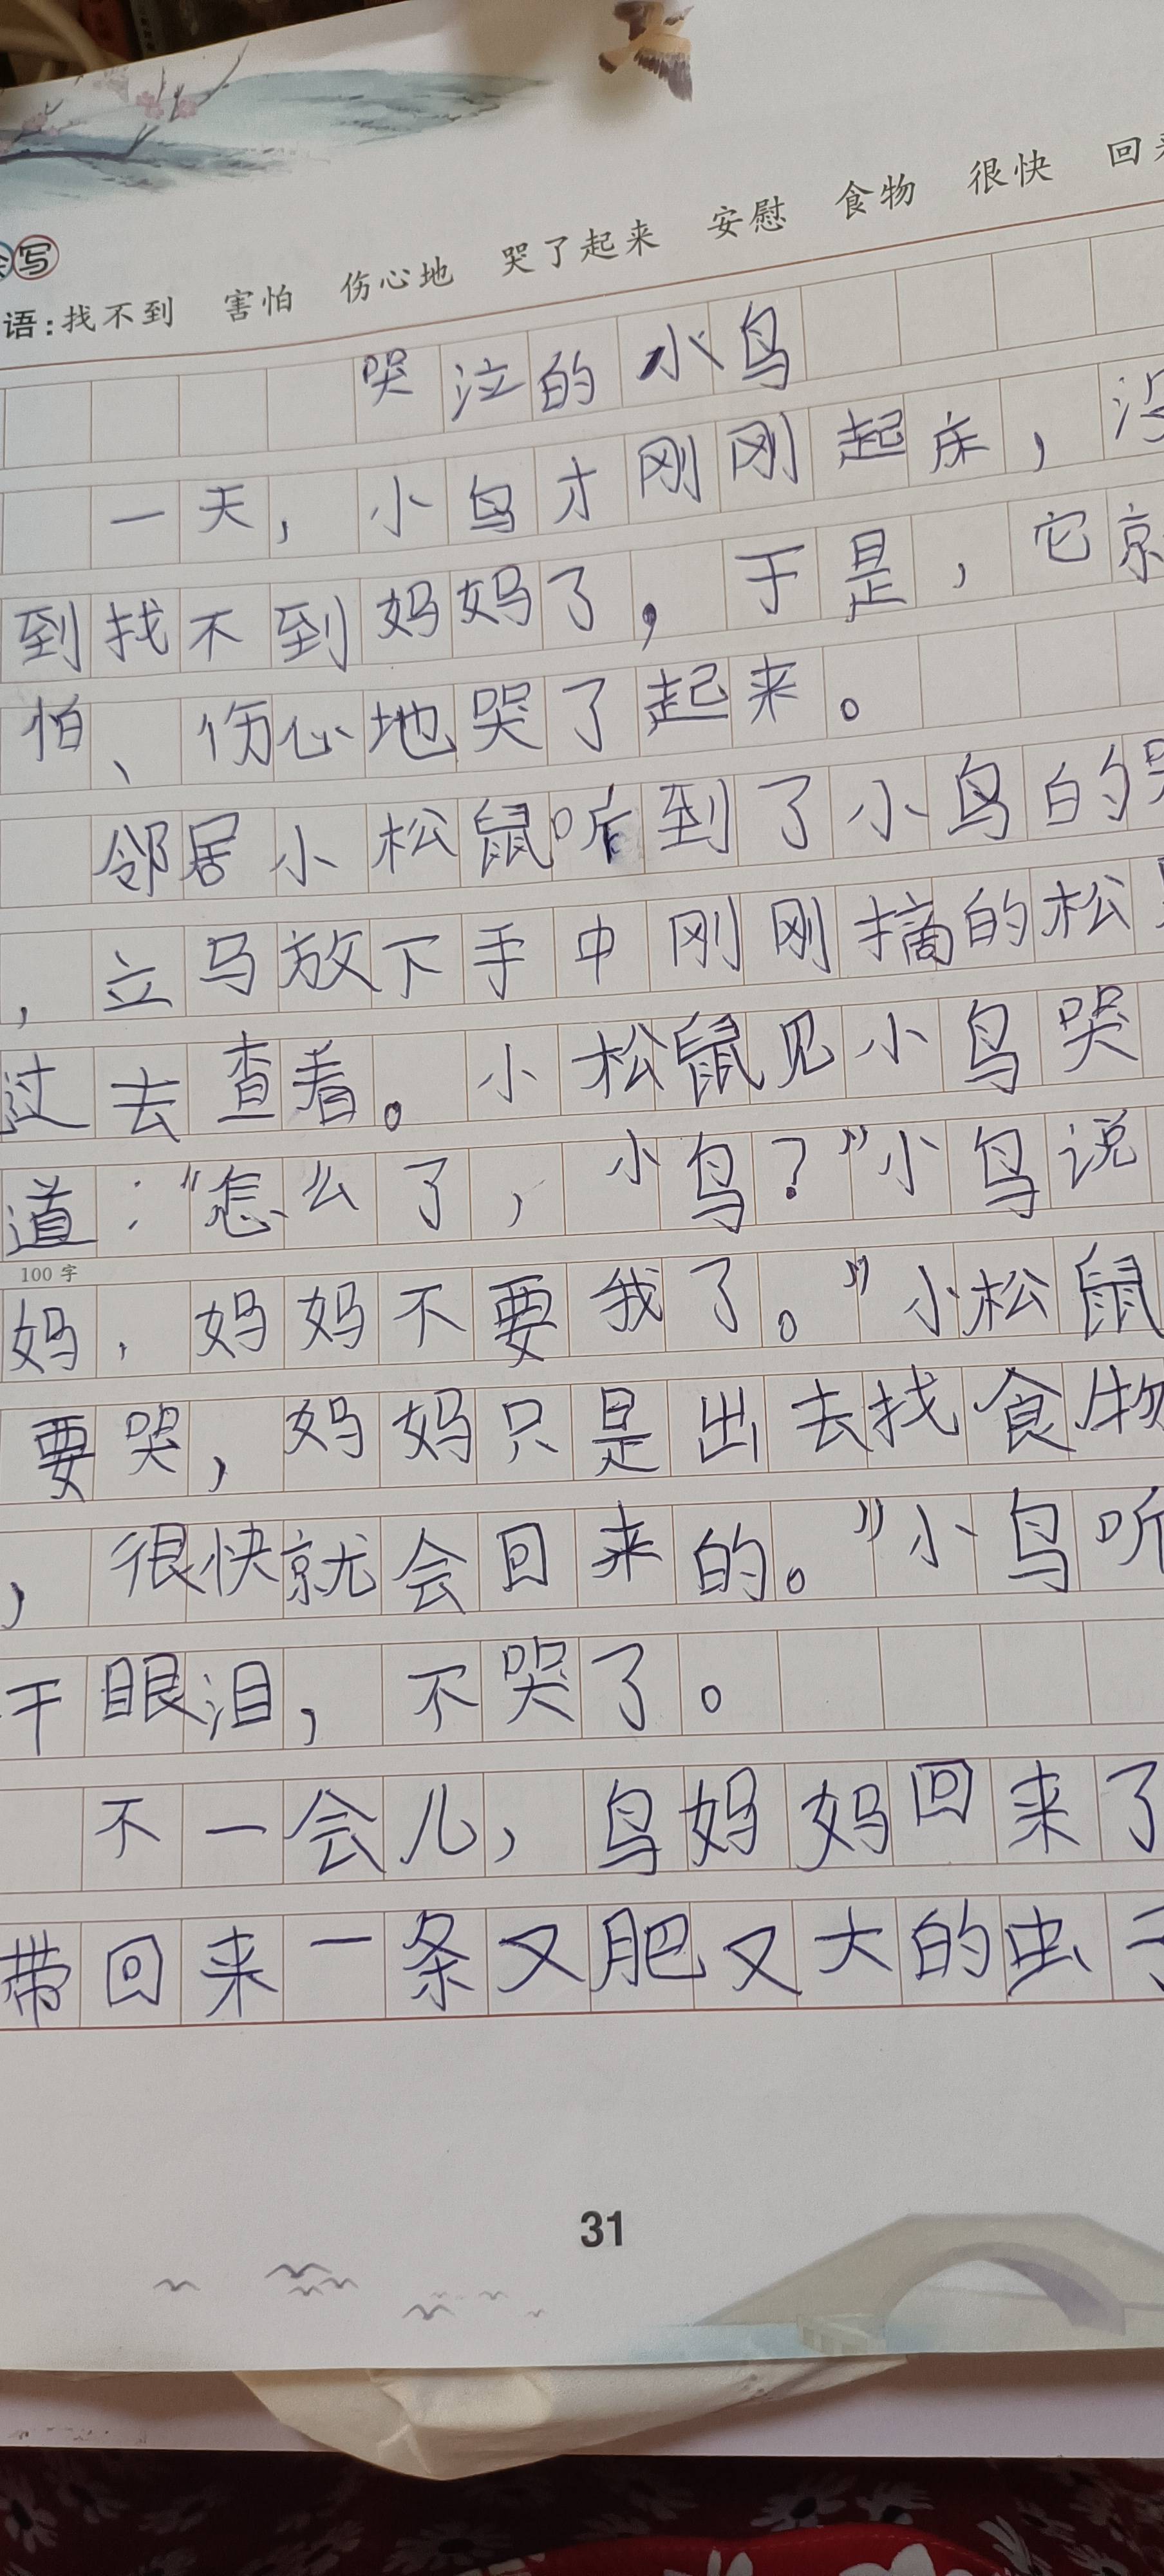 写
语:找不到 害怕 伤心地 哭了起来 安慰 食物 很快 回
哭泣的小鸟
一天,小鸟才刚刚起床,没
到找不到妈妈了,于是,它就
怕、伤心地哭了起来。
邻居小松鼠听到了小鸟的哭
,立马放下手中刚刚摘的松
过去查看。小松鼠见小鸟哭
道:“怎么了,小鸟?”小鸟说
100字
妈,妈妈不要我了。”小松鼠
要哭,妈妈只是出去找食物
,很快就会回来的。”小鸟听
干眼泪,不哭了。
不一会儿,鸟妈妈回来了
带回来一条又肥又大的虫子
31